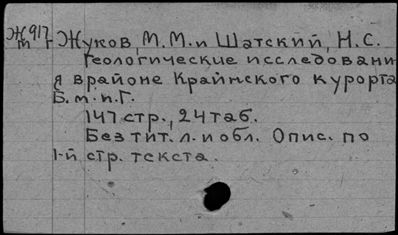 Ж917
т г Жуков, М.М. и Шатский, Н.С.
Геологические исследовани
я в районе Крайнского курорта
Б.м.и.г.
147 стр., 24 таб.
Без тит. л. и обл. Опис. по
1-й стр. текста.